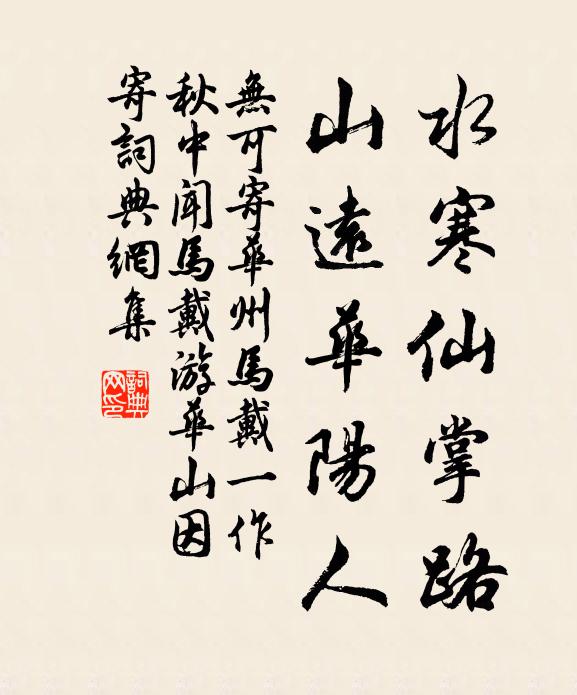 水寒仙掌路
山遠華陽人
無可寄華州馬戴一作
秋中聞馬戴游華山因
寄詞典網集
詞典
网印